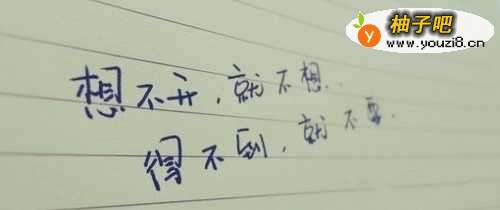 柚子吧
www.youzi8.cn
想不开，就不想.
得不到，就不要.